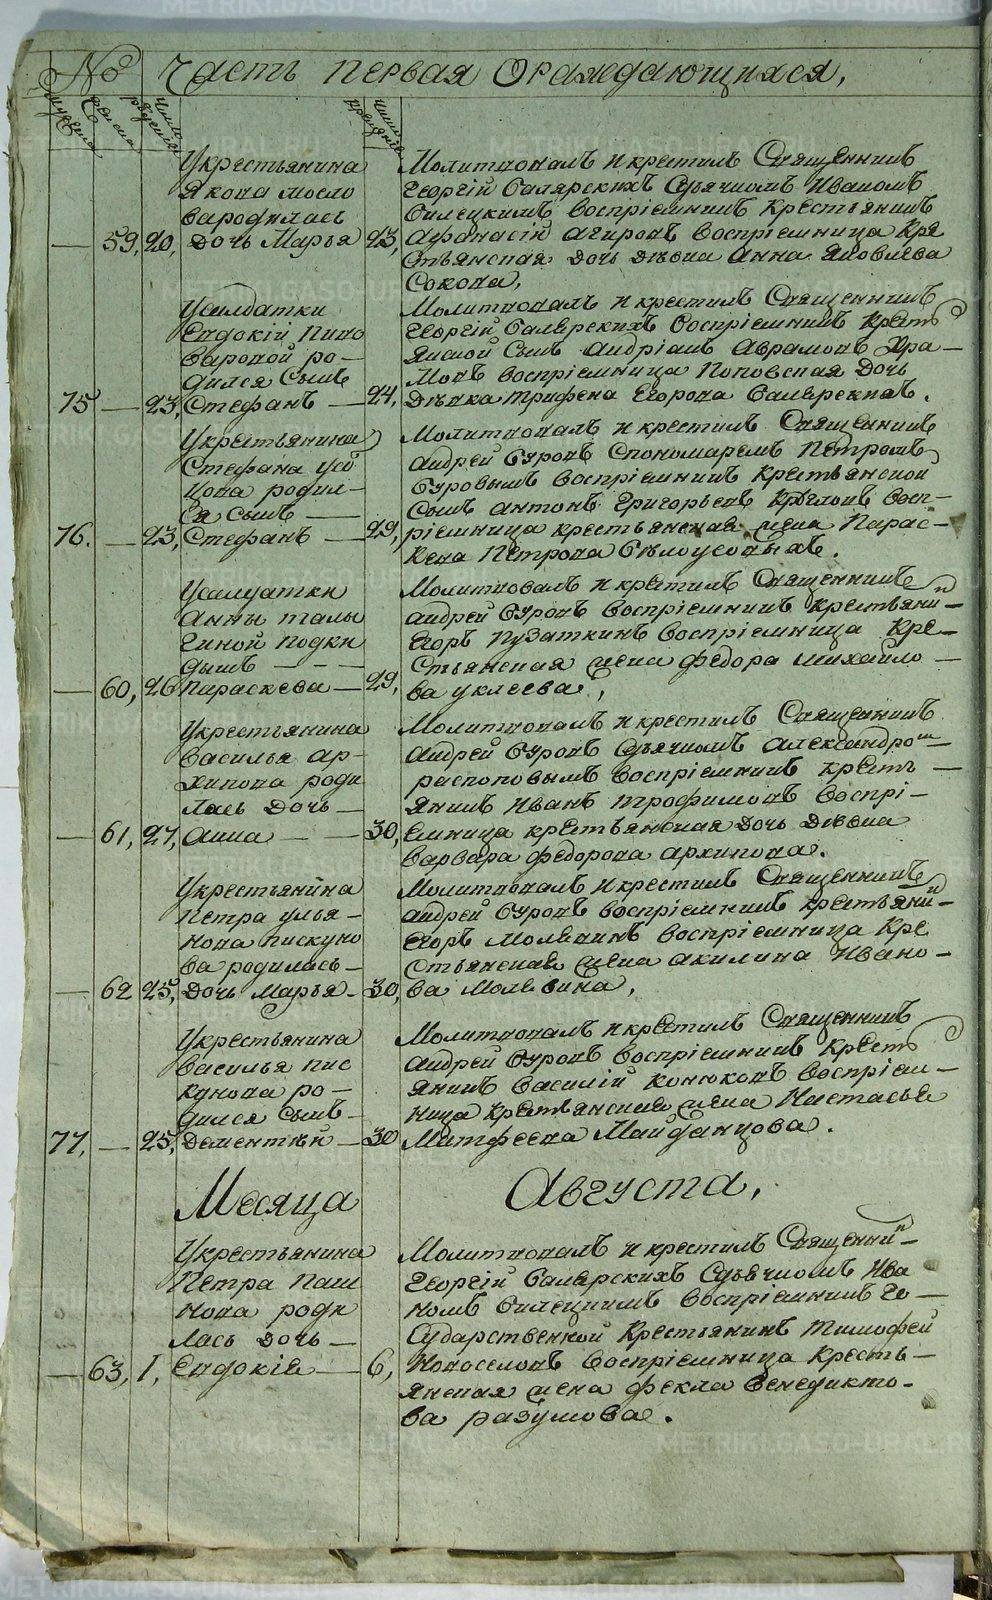 METRIKI.GASO-URAL.RU METRIKI.GASO-URAL.RU
№ Часть первая Ораждающихся,
Мужеска
женска
Число рождения
Число крещения
Укрестьянина
Якова мосло
ва родилась
— 59, 20, Дочь Марья 23,
Молитвовалъ и крестилъ Священникъ
Георгій Салярскихъ Сдьячкомъ Иваномъ
Билецкимъ Воспріемникъ Крестьянинъ
Афонасіи Агировъ Воспріемница Кре
стьянская дочь дѣвка Анна Яковлева
Сокова,
Усалдатки
Евдокіи Пиво
варовой ро—
дился Сынъ
75 — 23, Стефанъ — 24,
Молитвовалъ и крестилъ Священникъ
Георгій Салярскихъ Воспріемникъ Кресть
янской Сынъ Андріанъ Аврамовъ Хра—
мовъ Воспріемница Поповская Дочь
Дѣвка трифена Егорова Салярскихъ.
Укрестьянина
Стефана усо
цова родил—
ся сынъ —
76. — 23, Стефанъ — 29,
Молитвовалъ и крестилъ Священникъ
Андрей Суровъ Спономаремъ Петромъ
Суровымъ Воспріемникъ Крестьянской
Сынъ Антонъ Григорьевъ Кругловъ Восп—
ріемница крестьянская жена Парас—
кева Петрова Бѣлоусовыхъ.
Усалдатки
Анны талы
гиной подки
дышъ — — —
— 60, 26 Параскева — 29,
Молитвовалъ и крестилъ Священникъ
Андрей Суровъ Воспріемникъ крестьяни—
Егоръ Пузаткинъ Воспріемница Кре—
стьянская жена Федора Михайло—
ва уклеева,
Укрестьянина
Василья ар—
хипова роди
лась дочь —
— 61, 27, Анна — — 30,
Молитвовалъ и крестилъ Священникъ
Андрей Суровъ Сдьячкомъ Александром—
распоповымъ Воспріемникъ кресть—
янинъ Иванъ трофимовъ Воспрі—
емница крестьянская Дочь Дѣвка
Варвара федорова архипова.
Укрестьянина
Петра улья—
нова пискуно
ва родилась—
— 62 25, Дочь Марья— 30,
Молитвовалъ и крестилъ Священникъ
Андрей Суровъ Воспріемникъ крестьяни—
Егоръ Молвинъ Воспріемница Кре
стьянская жена Акилина Ивано—
ва Молвина,
Укрестьянина
Василья пис
кунова ро—
дился Сынъ—
77, — 25, Дементѣи — 30
Молитвовалъ и крестилъ Священникъ
Андрей Суровъ Воспріемникъ Кресть
янинъ Василій Конюховъ Воспріем—
ница Крестьянская жена Настасья
Матфеева Майданцова.
Месяца Августа,
Укрестьянина
Петра Паш
нова роди
лась дочь —
— 63, 1, Евдокія — 6,
Молитвовалъ и крестилъ Священни—
Георгій Салярскихъ Сдьячкомъ Ива
номъ Билецкимъ Воспріемникъ Го—
сударственной Крестьянинъ Тимофей
Новоселовъ Воспріемница Кресть—
янская жена фекла Венедикто—
ва разумова.
METRIKI.GASO-URAL.RU METRIKI.GASO-URAL.RU